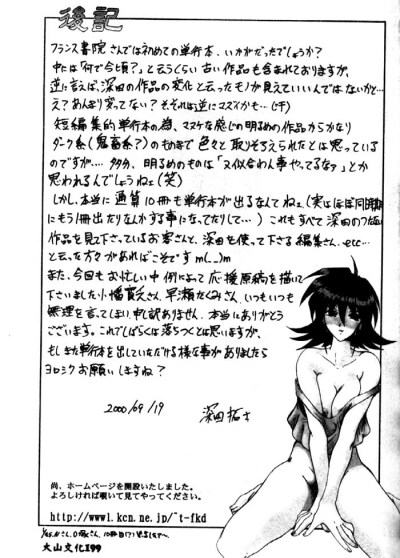 後記
フランス書院さんでは初めての単行本、いかがだったでしょうか?
中には「何で今頃?」と云うくらい古い作品も含まれておりますが、
逆に言えば、深田の作品の変化と云ったモノが見えていいんではないかと…
え?あんまり変ってない?そ、それは逆にマズイかも…(汗)
短編集的単行本の為、マヌケな感じの明るめの作品からかなり
ダーク系(鬼畜系?)のものまで色々と取りそろえられたとは思っている
のですが…。多分、明るめのものは「又似合わん事やってるなァ」とか
思われるんでしょうねェ(笑)
しかし、本当に通算10冊も単行本が出るなんてねェ(実はほぼ同時期
にもう1冊出たりなんかする事になってたりして…)これもすべて深田の
作品を見て下さっているお客さんと、深田を使って下さる編集さん、etc…
と云った方々があればこそです m(__)m
また、今回もお忙しい中例によって応援原稿を描いて
下さいました小幡さん、早瀬たくみさん、いつもいつも
無理を言ってしまい申し訳ありません、本当にありがとう
ございます。これでしばらくは落ちつくとは思いますが、
もしまた単行本を出していただける様な事がありましたら
ヨロシクお願いしますね?
2000/09/19
深田拓士
尚、ホームページを開設いたしました。
よろしければ覗いて見てやってください。
http://www1.kcn.ne.jp/~t-fkd